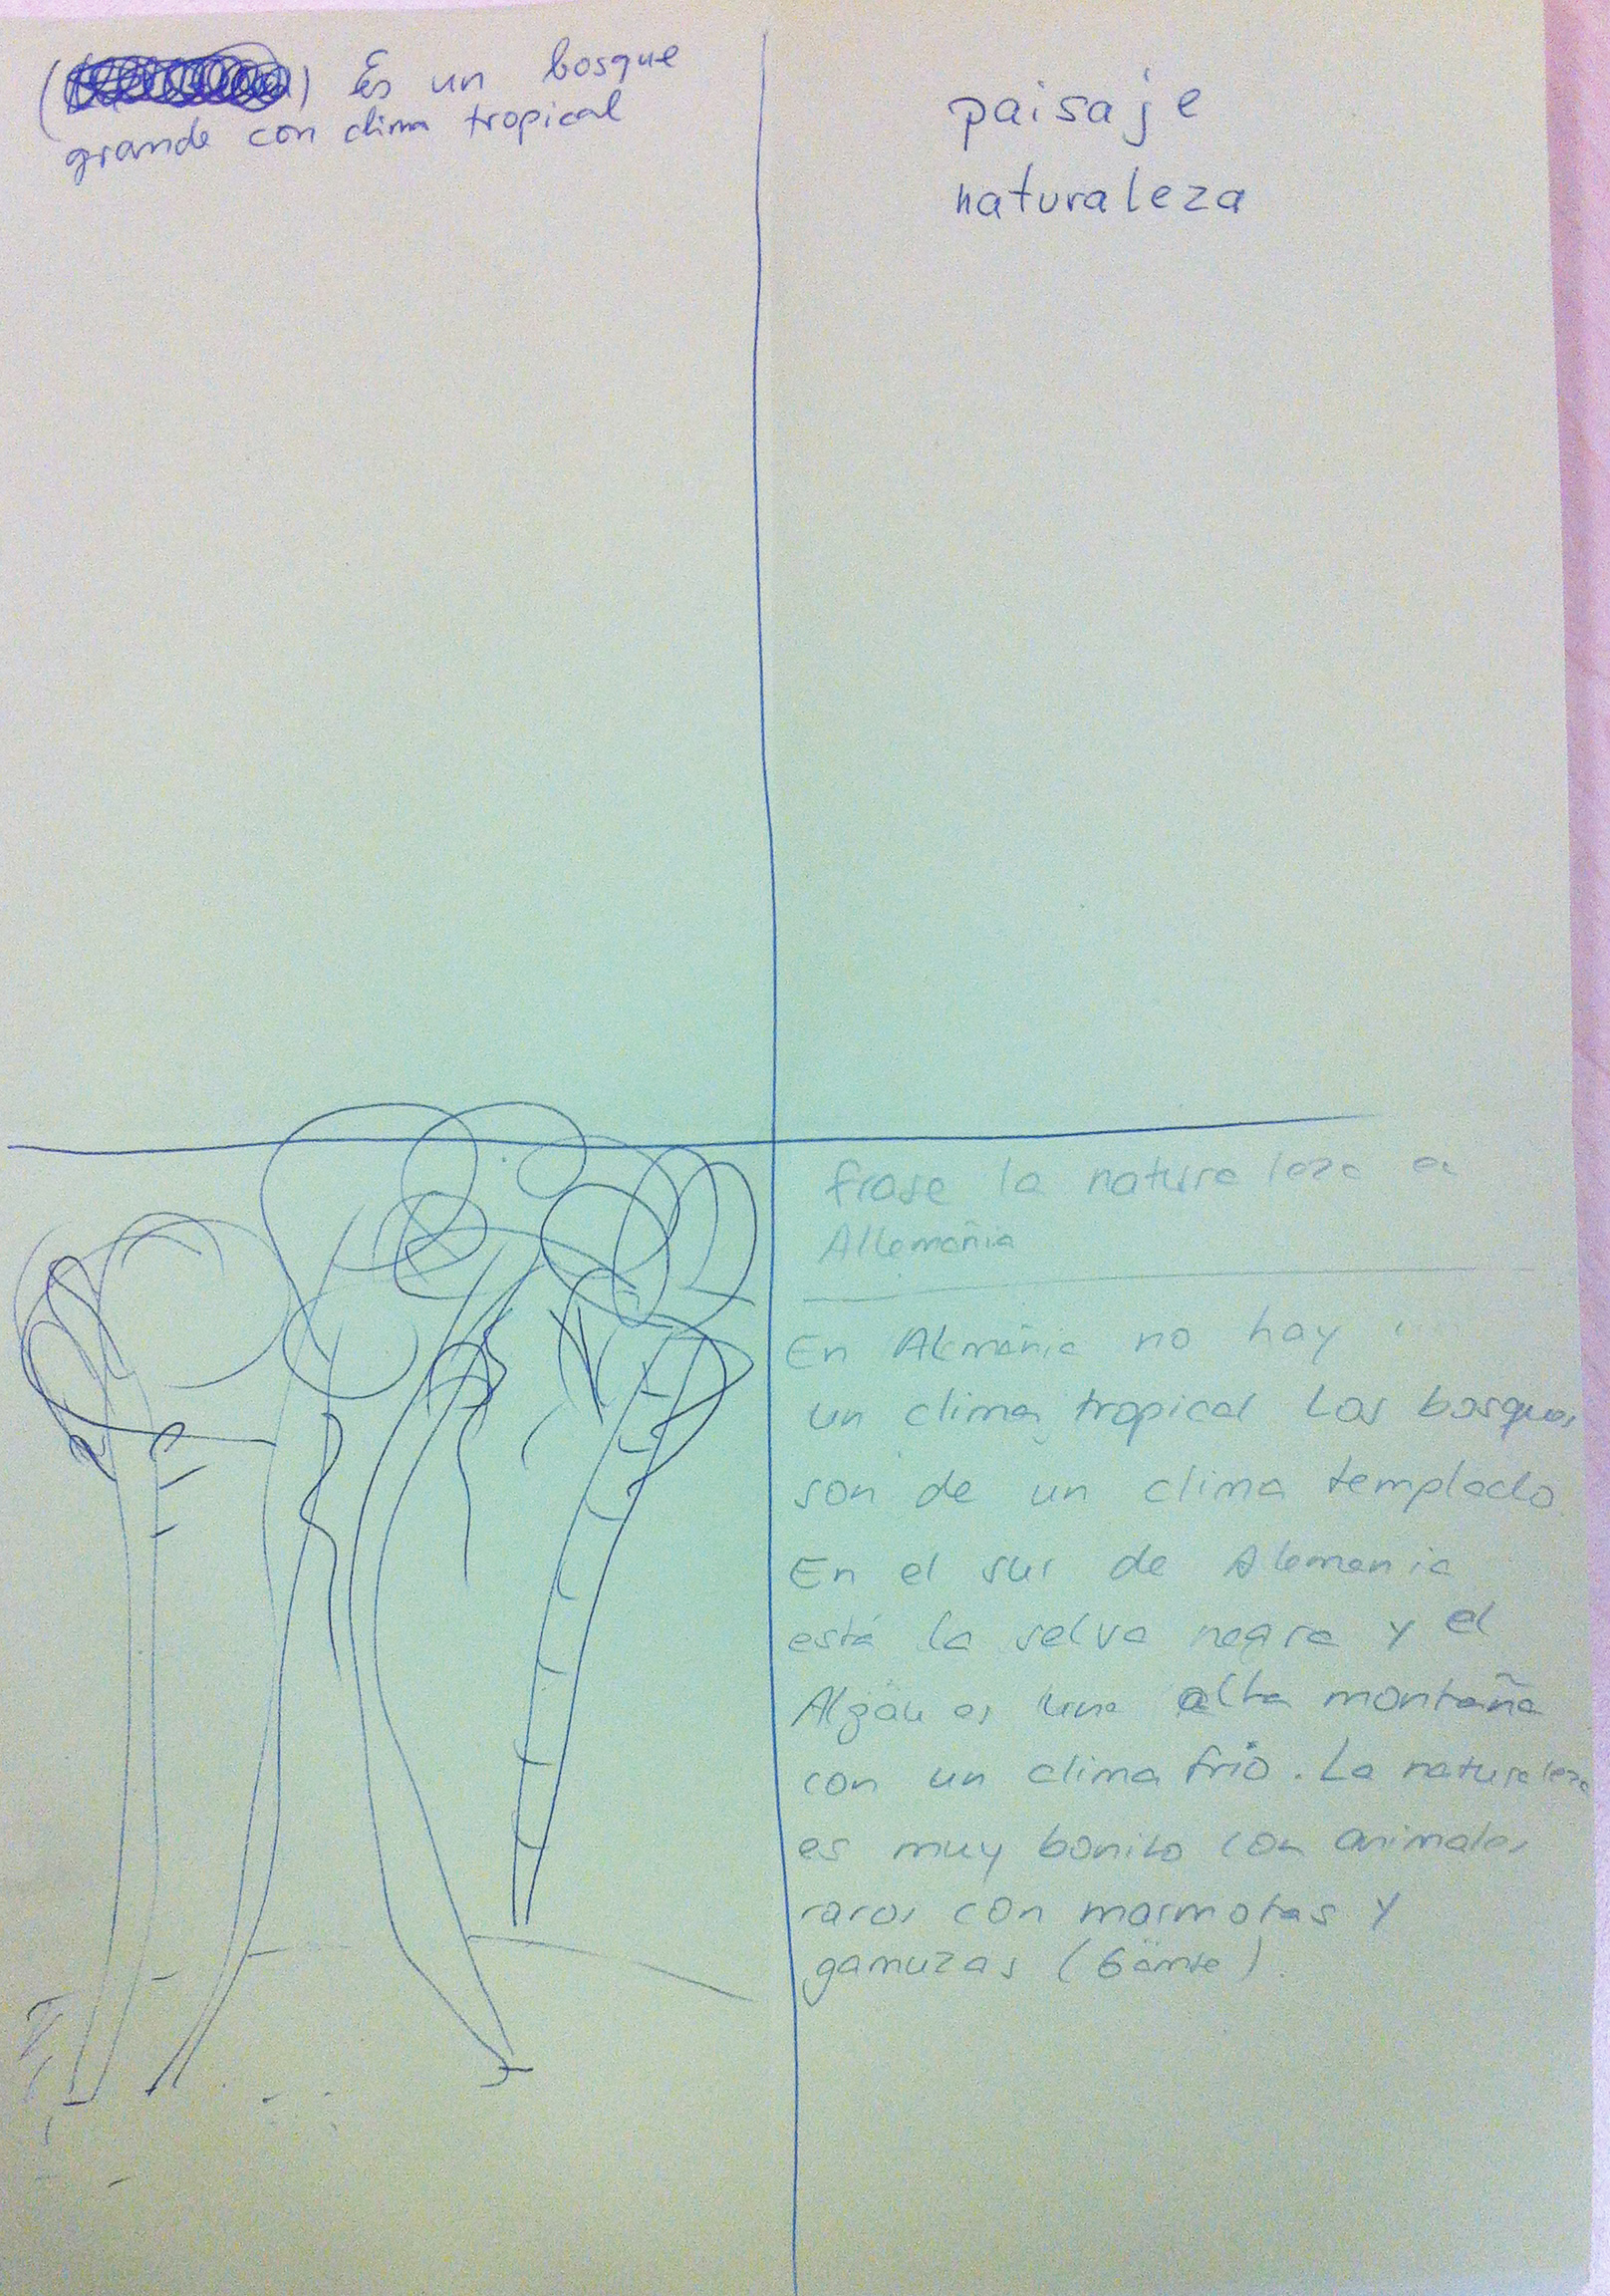 Es un bosque
grande con clima tropical
paisaje
naturaleza
frase la naturaleza
Allemañia
En Alemañia no hay
un clima tropical Los bosques
son de un clima templado
En el sur de Alemania
está la selva negra y el
Algäu es una alta montaña
con un clima frio. La naturaleza
es muy bonito con animales
raros con marmotas y
gamuzas (Gämse).